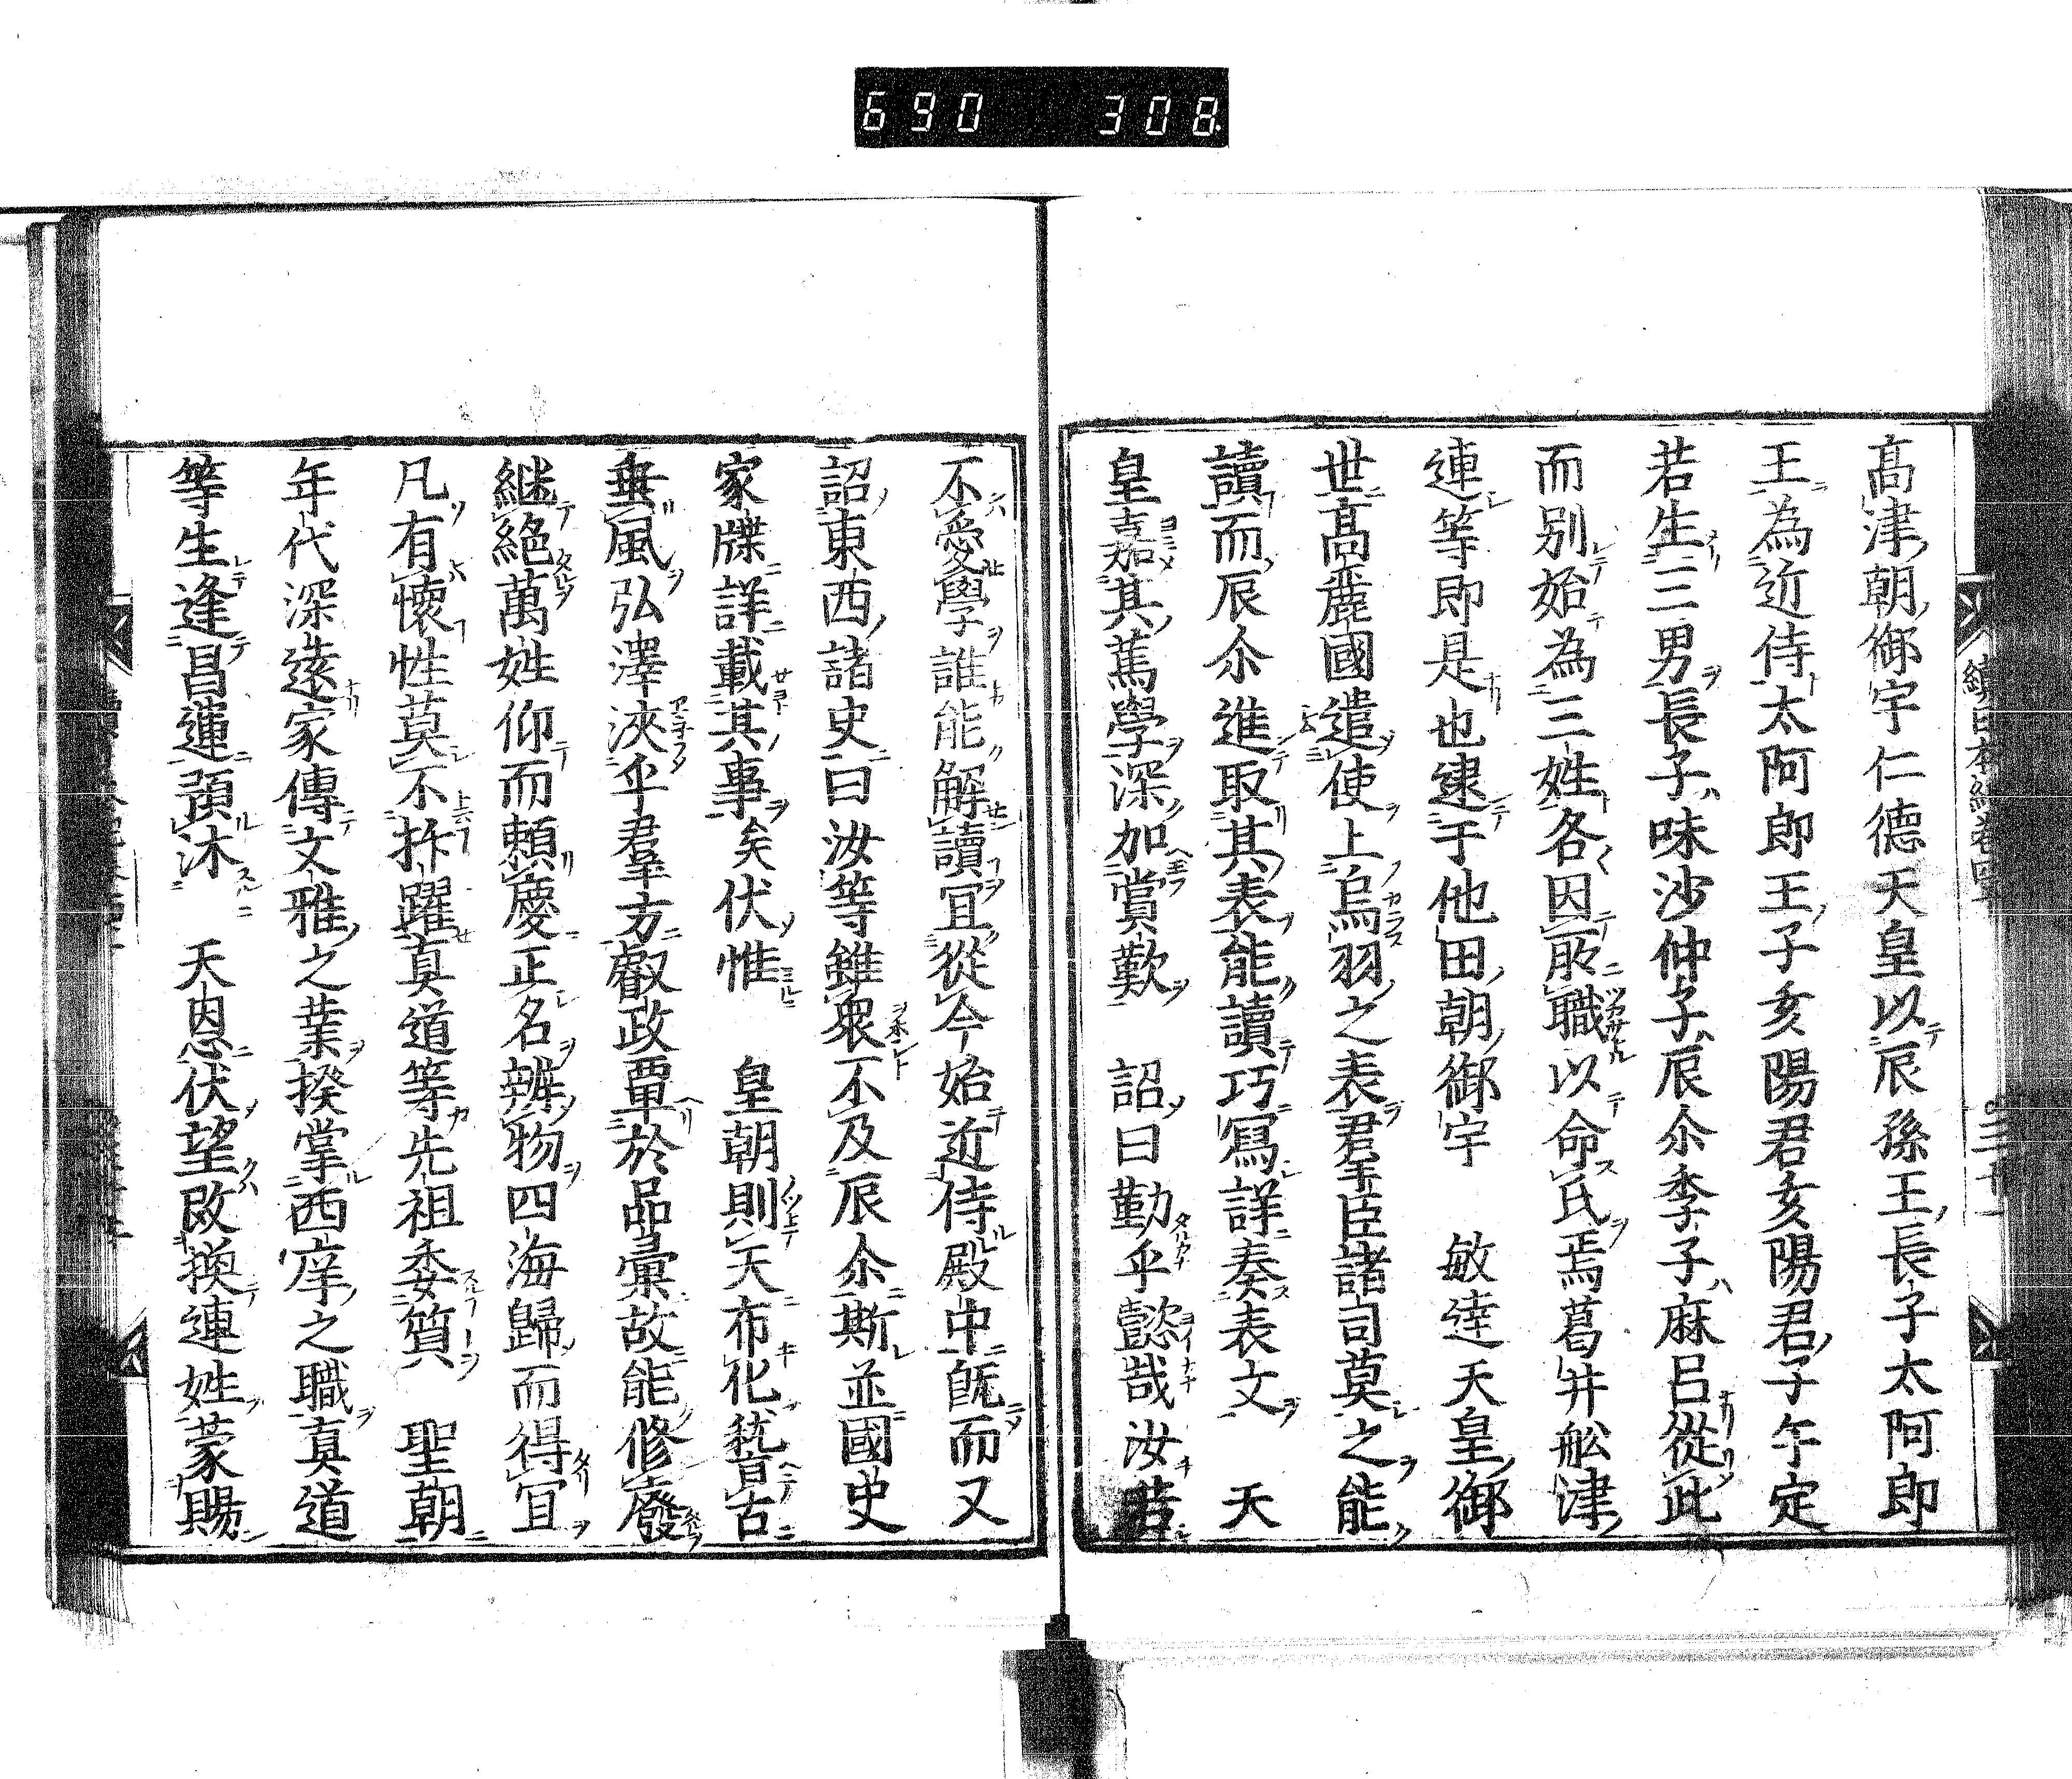 690 308
高津朝御宇仁德天皇以辰孫王長子太阿郎
王為近侍太阿郎王子亥陽君亥陽君子午定
若生三男長子味沙仲子辰尒季子麻呂從此
而別始為三姓各因所職以命氏焉葛井舩津
連等即是也逮于他田朝御宇　敏達天皇御
世髙麗國遣使上烏羽之表群臣諸司莫之能
讀而辰尒進取其表能讀巧寫詳奏表文　天
皇嘉其篤學深加賞歎　詔曰勤乎懿哉汝若
不愛學誰能解讀冝從今始近侍殿中旣而又
詔東西諸史曰汝等雖衆不及辰尒斯並國史
家牒詳載其事矣伏惟　皇朝則天布化稽古
垂風弘澤浹乎羣方叡政覃於品彙故能修廢
継絶萬姓仰而頼慶正名辨物四海歸而得冝
凡有懷性莫不抃躍真道等先祖委質　聖朝
年代深遠家傳文雅之業族掌西庠之職真道
等生逢昌運預沐　天恩伏望改換連姓蒙賜